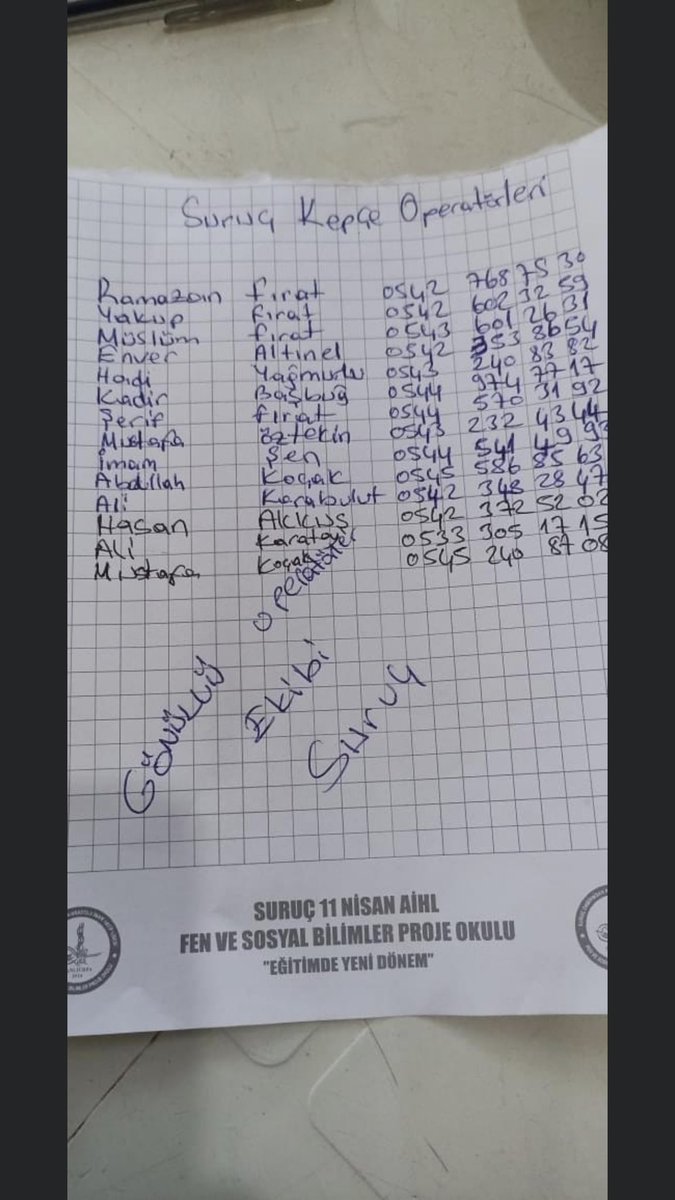 Suruç Kepçe Operatörleri
Ramazan fırat 0542 768 75 30
Yakup fırat 0542 602 32 59
Müslüm fırat 0543 601 26 31
Enver Altınel 0542 353 86 54
Hadi Yağmurlu 0543 240 83 82
Kadir Başbuğ 0544 974 77 17
Şerif fırat 0544 570 31 92
Mustafa Öztekin 0543 232 43 44
İmam Şen 0544 541 49 93
Abdullah Koçak 0545 586 85 63
Ali Karabulut 0542 348 28 47
Hasan Akkuş 0542 372 52 02
Ali Karatay 0533 305 17 15
Mustafa Koçak 0545 240 87 08
Gönüllü Operatörler
Ekibi
Suruç
SURUÇ 11 NİSAN AİHL
FEN VE SOSYAL BİLİMLER PROJE OKULU
"EĞİTİMDE YENİ DÖNEM"